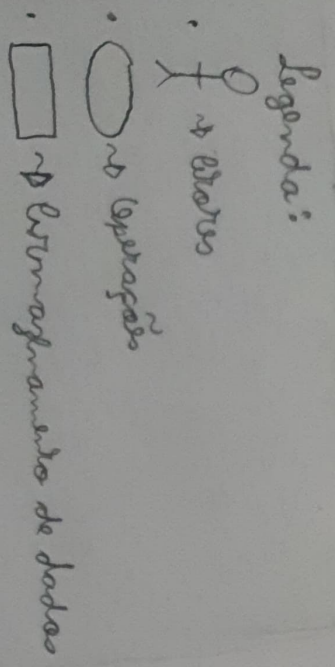 Legenda:
• → Atores
• → Operações
• → Armazenamento de dados